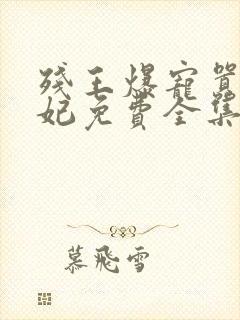 残王爆宠嚣
妃免费全集
慕飛雪